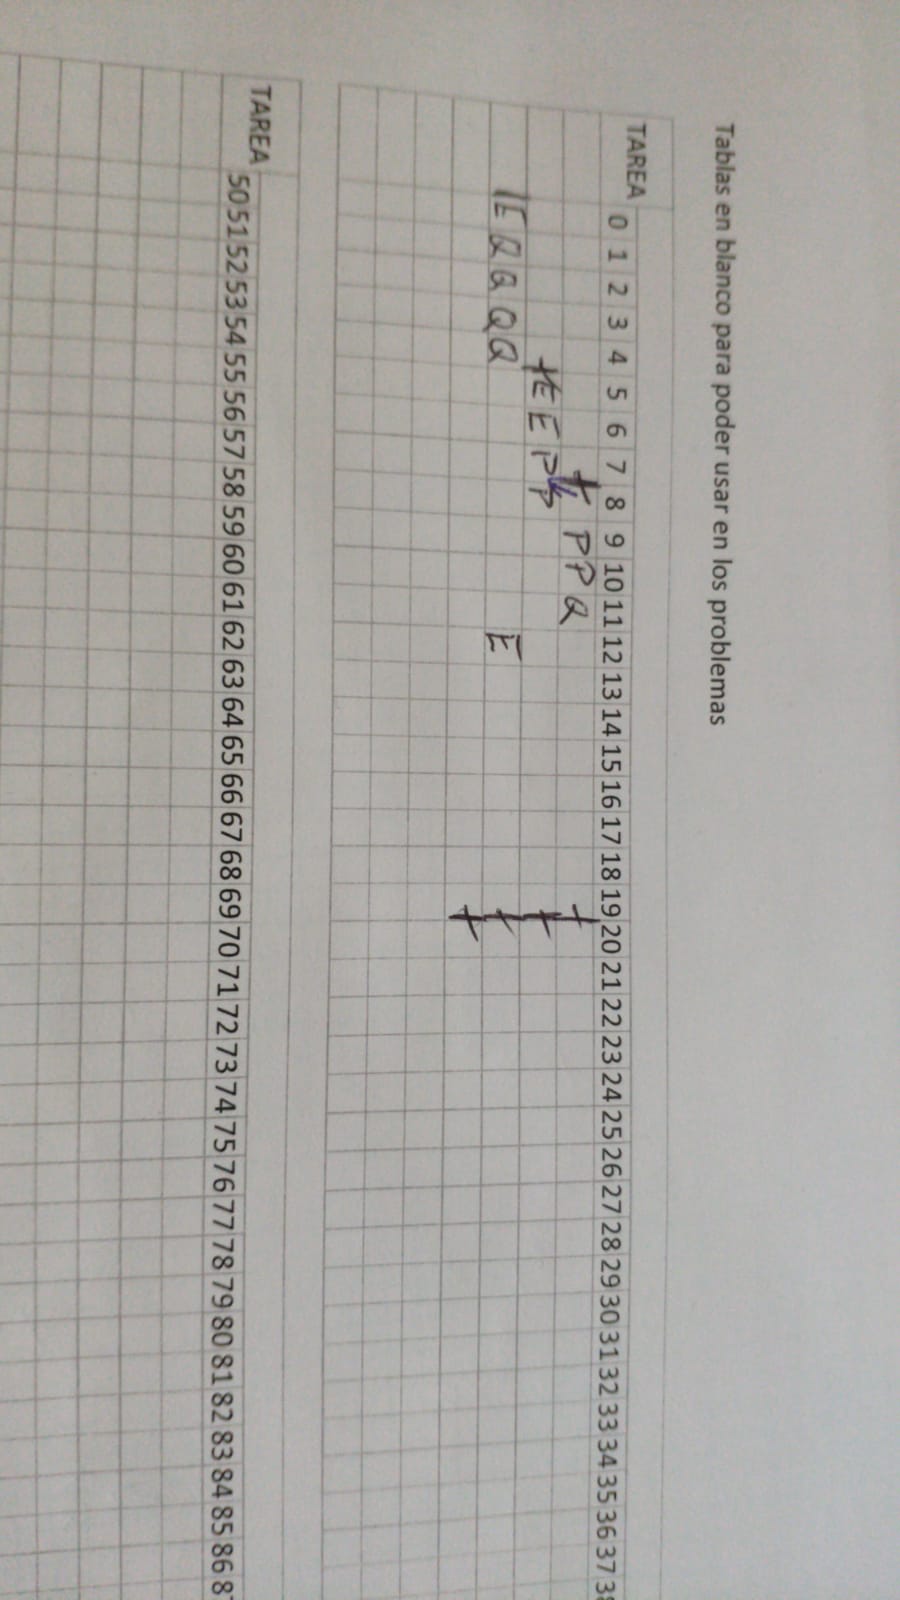 Tablas en blanco para poder usar en los problemas
TAREA 0 1 2 3 4 5 6 7 8 9 10 11 12 13 14 15 16 17 18 19 20 21 22 23 24 25 26 27 28 29 30 31 32 33 34 35 36 37 38
P P Q
E E P P
E Q Q Q Q E
TAREA 50 51 52 53 54 55 56 57 58 59 60 61 62 63 64 65 66 67 68 69 70 71 72 73 74 75 76 77 78 79 80 81 82 83 84 85 86 8